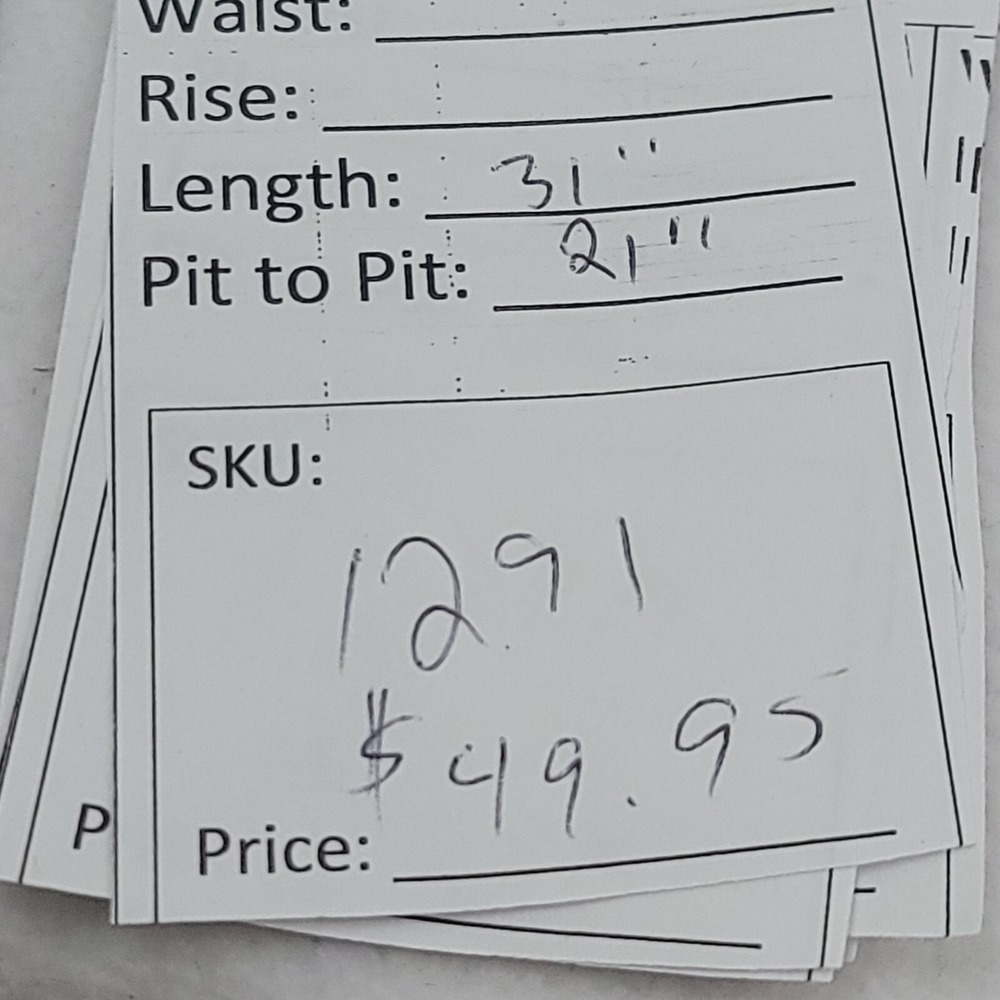 Waist:
Rise:
Length: 31"
Pit to Pit: 21"
SKU:
1291
$49.95
Price:
P